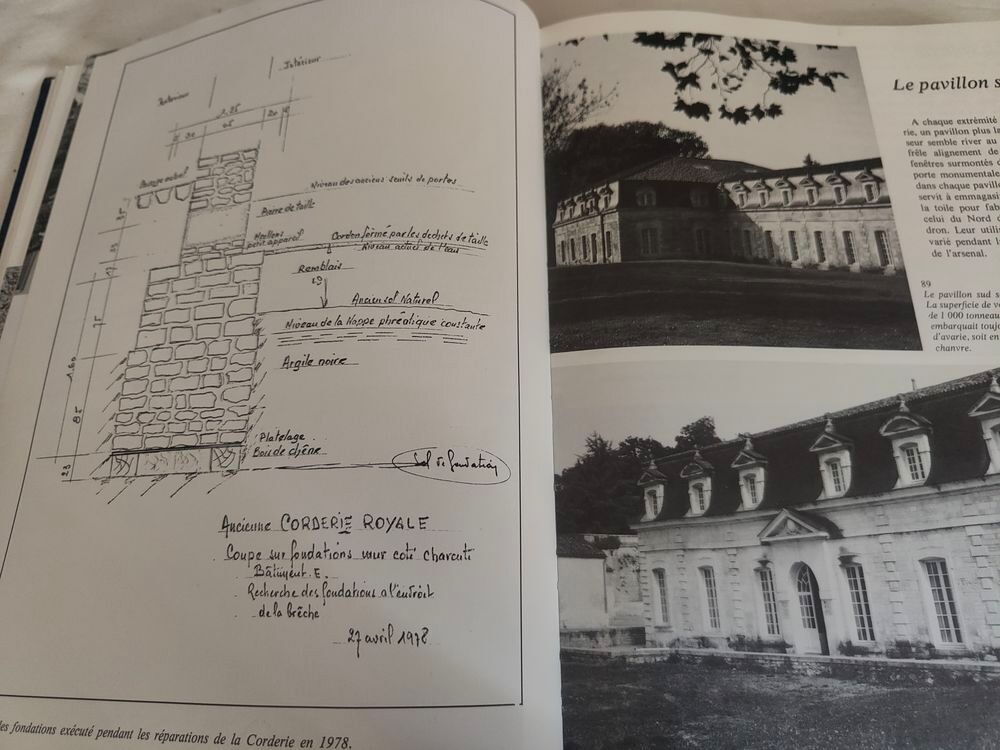 Intérieur
Extérieur
1,25
65
20
Niveau des anciens seuils de portes
Pierre de taille
Moellons
petit appareil
Corden formé par les dechets de taille
Niveau actuel de l'eau
Remblais
Ancien sol Naturel
Niveau de la Nappe phréatique constante
Argile noire
75
1,60
85
23
Platelage
Bois de chêne
Sol de fondation
Ancienne CORDERIE ROYALE
Coupe sur fondations mur coté charente
Bâtiment. E.
Recherche des fondations a l'endroit
de la brêche
27 avril 1978
les fondations exécuté pendant les réparations de la Corderie en 1978.
Le pavillon s
A chaque extrémité
rie, un pavillon plus l
seur semble river au
frêle alignement de
fenêtres surmontés d
porte monumentale
dans chaque pavill
servit à emmagasi
la toile pour fab
celui du Nord
dron. Leur utili
varié pendant l
de l'arsenal.
89
Le pavillon sud s
La superficie de v
de 1 000 tonneau
embarquait touj
d'avarie, soit en
chanvre.